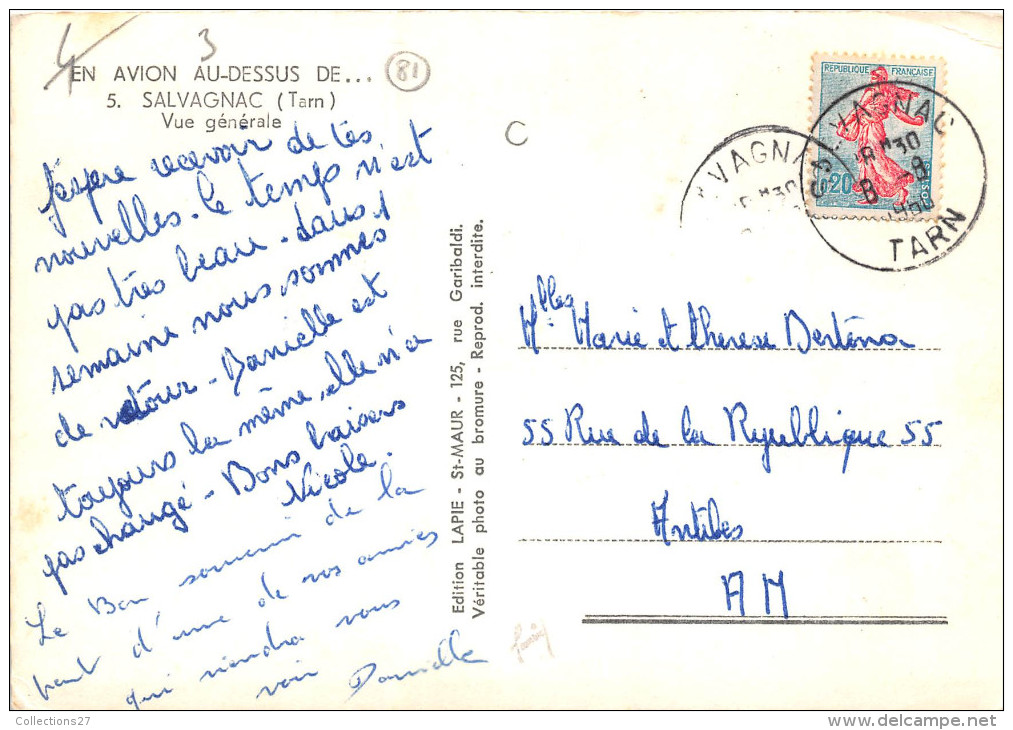 4 3
EN AVION AU-DESSUS DE... 81
5. SALVAGNAC (Tarn)
Vue générale
C
J'espère recevoir de tes
nouvelles. le temps n'est
pas très beau. dans 1
semaine nous sommes
de retour - Danielle est
toujours la même, elle n'a
pas changé - Bons baisers
Nicole.
Le Bon souvenir de la
part d'une de vos amies
qui viendra vous
voir Danielle
Edition LAPIE - St-MAUR - 125, rue Garibaldi.
Véritable photo au bromure - Reprod. interdite.
REPUBLIQUE FRANÇAISE
0,20
POSTES
SALVAGNAC
18H30
8 -8
1960
TARN
VAGNA
Mlles Marie et therese Derténa
55 Rue de la République 55
Antibes
A M
Collections27
delcampe.net